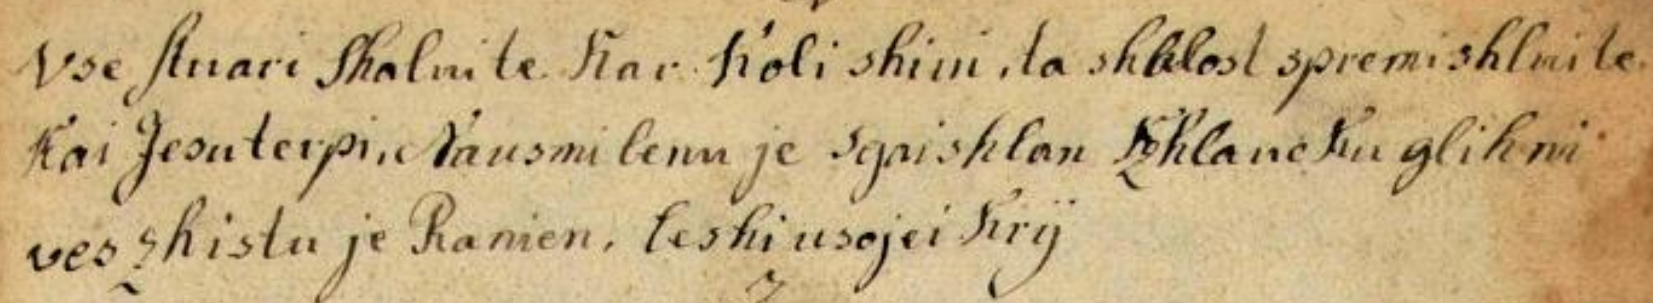 Vse stuari shalui te. Kar koli shivi, ta shalost spremishlui te.
Kai Jesu terpi, Nausmilenu je sgaishlan kzhlaveku glih ni
ves zhistu je Ranien, leshi usojei Krij